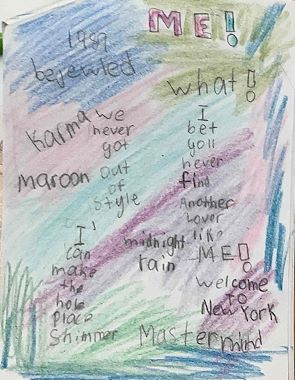 ME!
1989
bejewled
what!
Karma
we
never
got
out
of
style
maroon
I
bet
you
never
find
Another
Lover
like
ME!
I
can
make
the
hole
place
Shimmer
midnight
rain
welcome
TO
New York
Mastermind